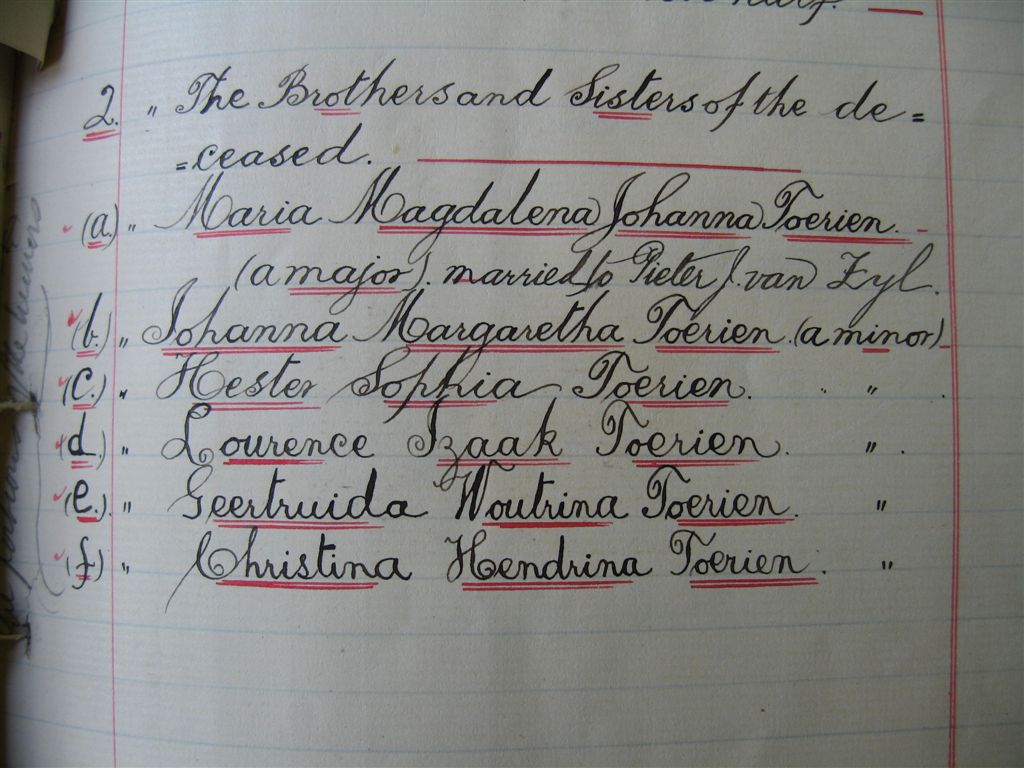 half.
2. " The Brothers and Sisters of the de=
=ceased.
(a.) " Maria Magdalena Johanna Toerien.
(a major). married to Pieter J. van Zyl.
(b.) " Johanna Margaretha Toerien. (a minor)
(c.) " Hester Sophia Toerien. " .
(d.) " Lourence Izaak Toerien. " .
(e.) " Geertruida Woutrina Toerien. "
(f.) " Christina Hendrina Toerien. "